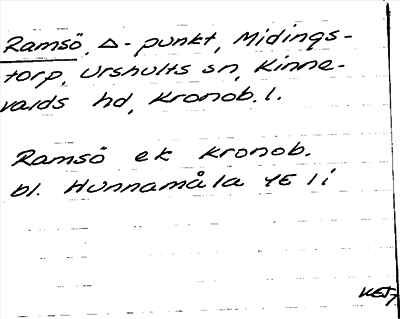 Ramsö, Δ-punkt, Midings-
torp, Urshults sn, Kinne-
valds hd, Kronob. l.
Ramsö ek Kronob.
bl. Hunnamåla 4E 1i